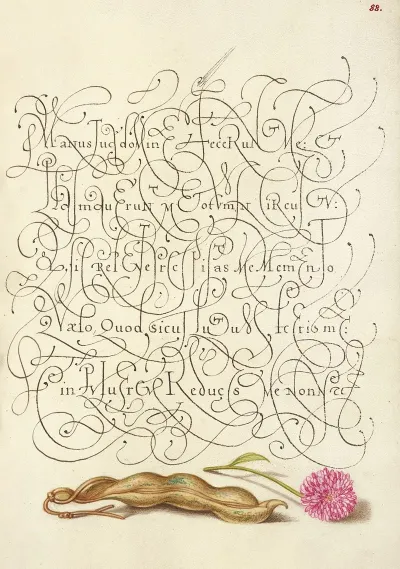 88.
Manus Tuę do ine Fecerunt Me:
Plasmauerunt Me Totum in Circuitu:
Et Sic Repente Precipitas Me Memento
Quæso, Quod sicut Lutum feceris me:
Et in Puluerem Reduces Me Nonne &c